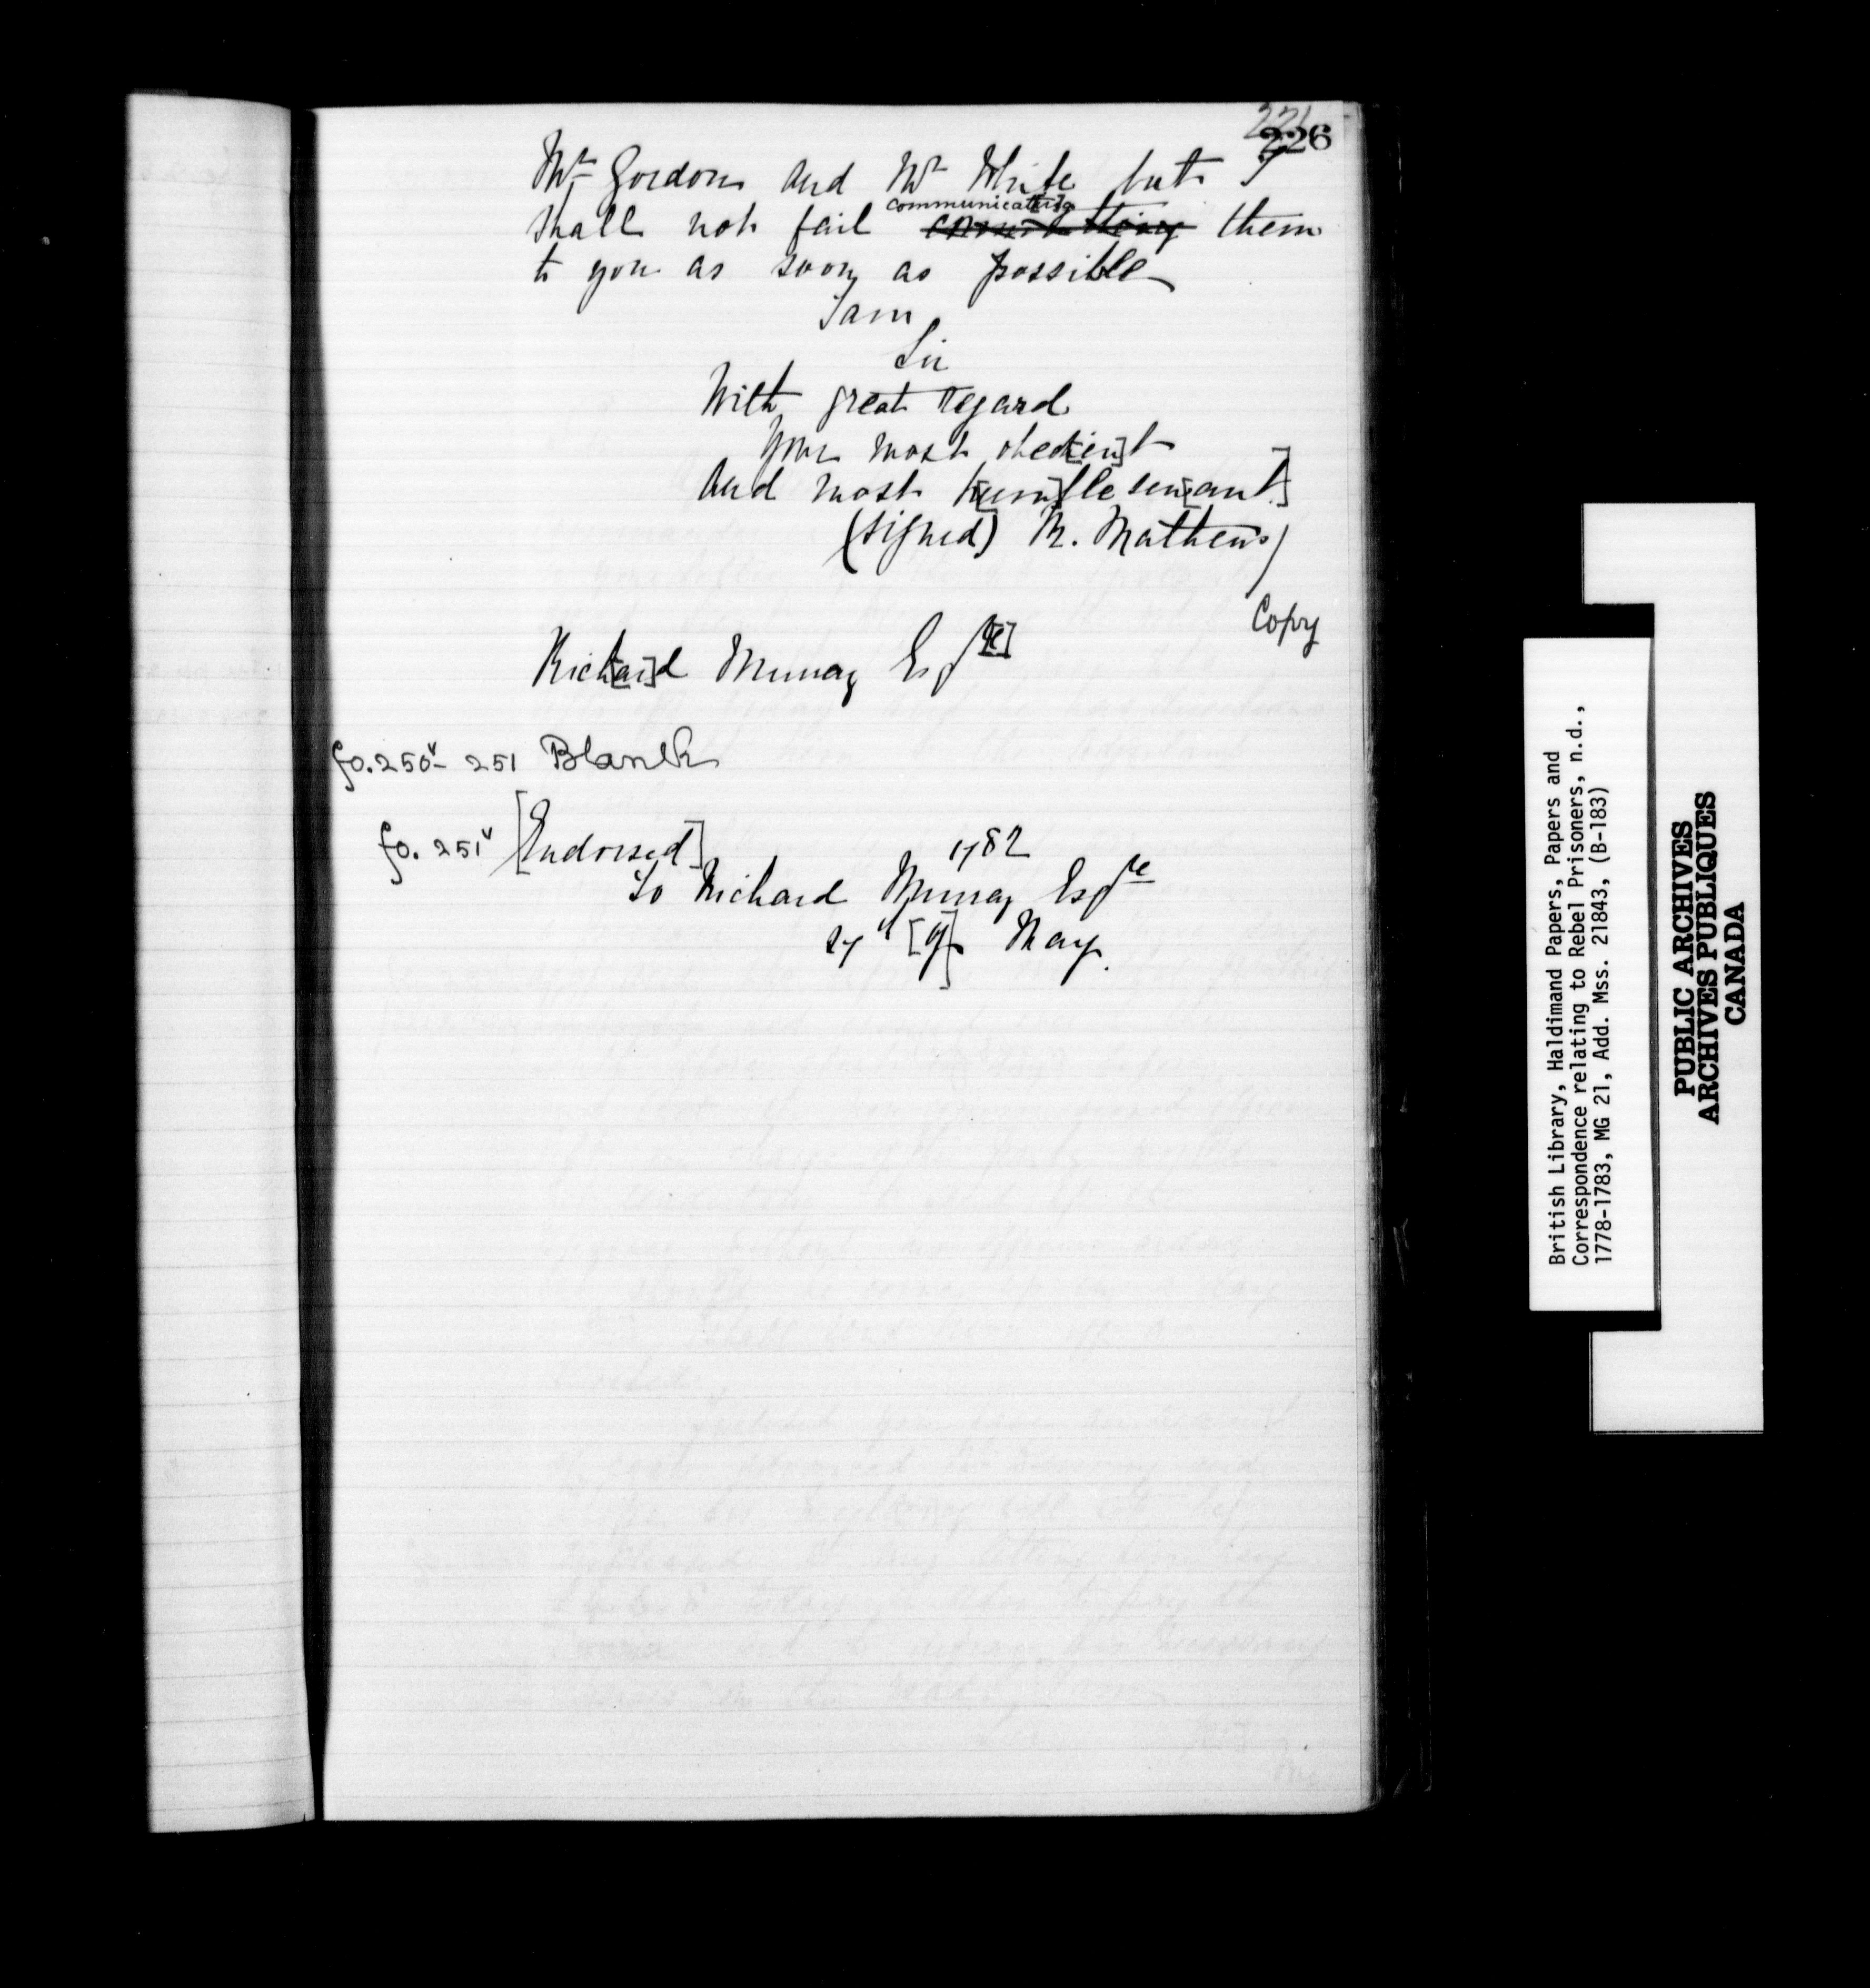 226
Mr Gordon and Mr White but I
communicat[in]g
shall not fail them
to you as soon as possible
I am
Sir
With great regard
Your most obed[ien]t
And most h[um]ble serv[ant]
(signed) R. Mathews
Copy
Rich[ar]d Murray Esqr[e]
fo. 250v - 251 Blank
fo. 251v [Endorsed]
1782
To Richard Murray Esqre
27th [of] May.
British Library, Haldimand Papers, Papers and
Correspondence relating to Rebel Prisoners, n.d.,
1778-1783, MG 21, Add. Mss. 21843, (B-183)
PUBLIC ARCHIVES
ARCHIVES PUBLIQUES
CANADA